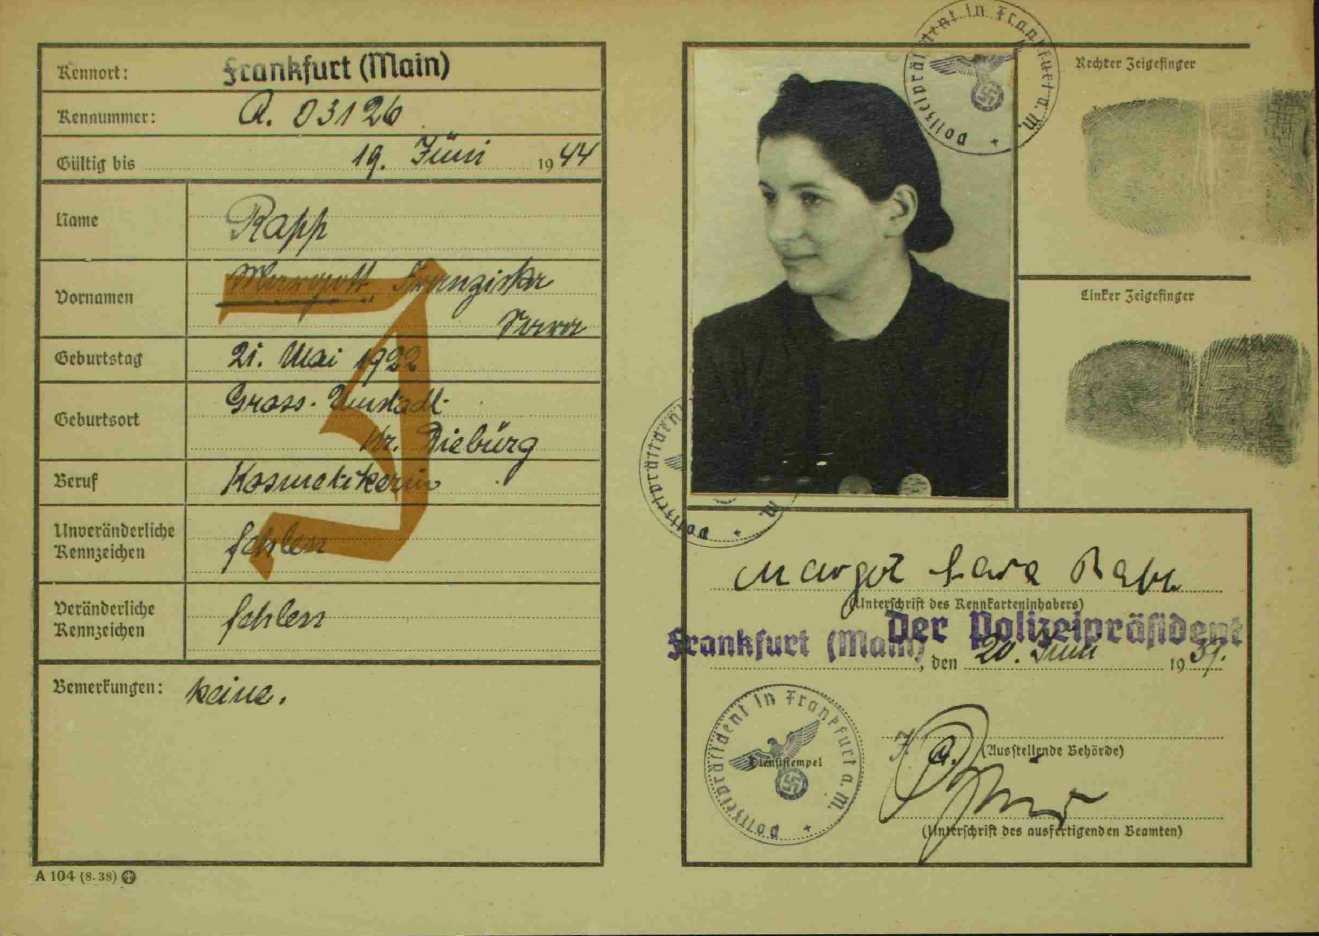 Kennort: Frankfurt (Main)
Kennummer: A. 03126
Gültig bis 19. Juni 1944
Name Rapp
Vornamen Margott Franziska
Sara
Geburtstag 21. Mai 1922
Geburtsort Gross-Umstadt
Kr. Dieburg
Beruf Kosmetikerin
Unveränderliche
Kennzeichen fehlen
Veränderliche
Kennzeichen fehlen
Bemerkungen: keine.
J
A 104 (8. 38)
Polizeipräsident in Frankfurt a. M.
Rechter Zeigefinger
Linker Zeigefinger
Polizeipräsident
a. M.
Margot Sara Rapp
(Unterschrift des Kennkarteninhabers)
Der Polizeipräsident
Frankfurt (Main), den 20. Juni 1939.
Polizeipräsident in Frankfurt a. M.
Dienststempel
(Ausstellende Behörde)
(Unterschrift des ausfertigenden Beamten)